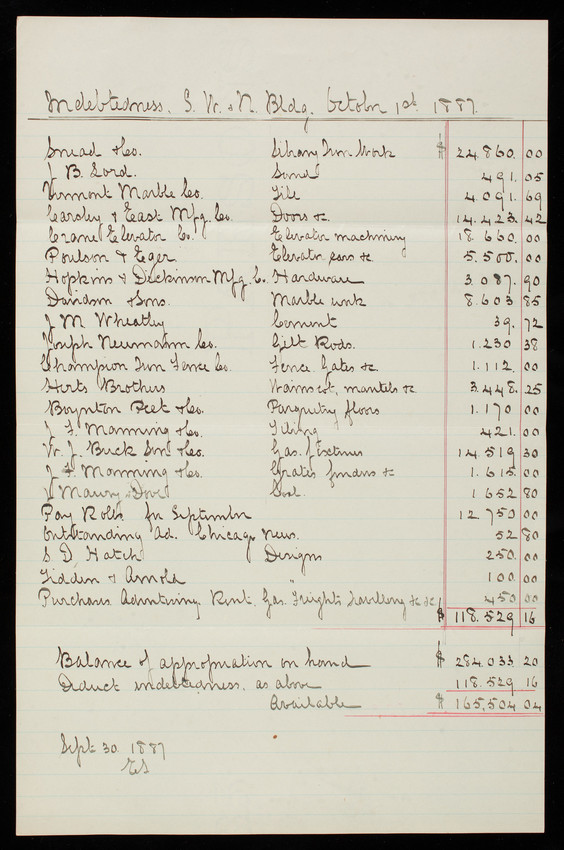 Indebtedness. S. W. & N. Bldg. October 1st 1887.
Snead & Co. Library Iron Work $ 24.860. 00
J. B. Lord. Sand 491. 05
Vermont Marble Co. Tile 4.091. 69
Carsley & East Mfg. Co. Doors &c. 14.423. 42
Crane Elevator Co. Elevator machinery 18.660. 00
Poulson & Eger Elevator cars &c 5.500. 00
Hopkins & Dickinson Mfg. Co. Hardware 3.087. 90
Davidson & Sons. Marble work 8.603 85
J M Wheatley Cement 39. 72
Joseph Neumann Co. Gilt Rods. 1.230 38
Champion Iron Fence Co. Fence Gates &c. 1.112. 00
Herts Brothers Wainscot, mantels &c 3.448. 25
Boynton Peet & Co. Parquetry floors 1.170 00
J. F. Manning & Co. Tiling 421. 00
W. J. Buck Son & Co. Gas. fixtures 14.519 30
J. F. Manning & Co. Grates fenders &c 1.615. 00
Maury & Dove Coal. 1.652 80
Pay Rolls for September 12 750 00
Outstanding Ad. Chicago News. 52 80
S D Hatch Designs 250. 00
Tidden & Arnold " 100. 00
Purchases Advertising. Rent. Gas. Freights hauling &c &c 450 00
$ 118.529 16
Balance of appropriation on hand $ 284.033. 20
Deduct indebtedness. as above 118.529 16
Available $ 165,504 04
Sept 30. 1887